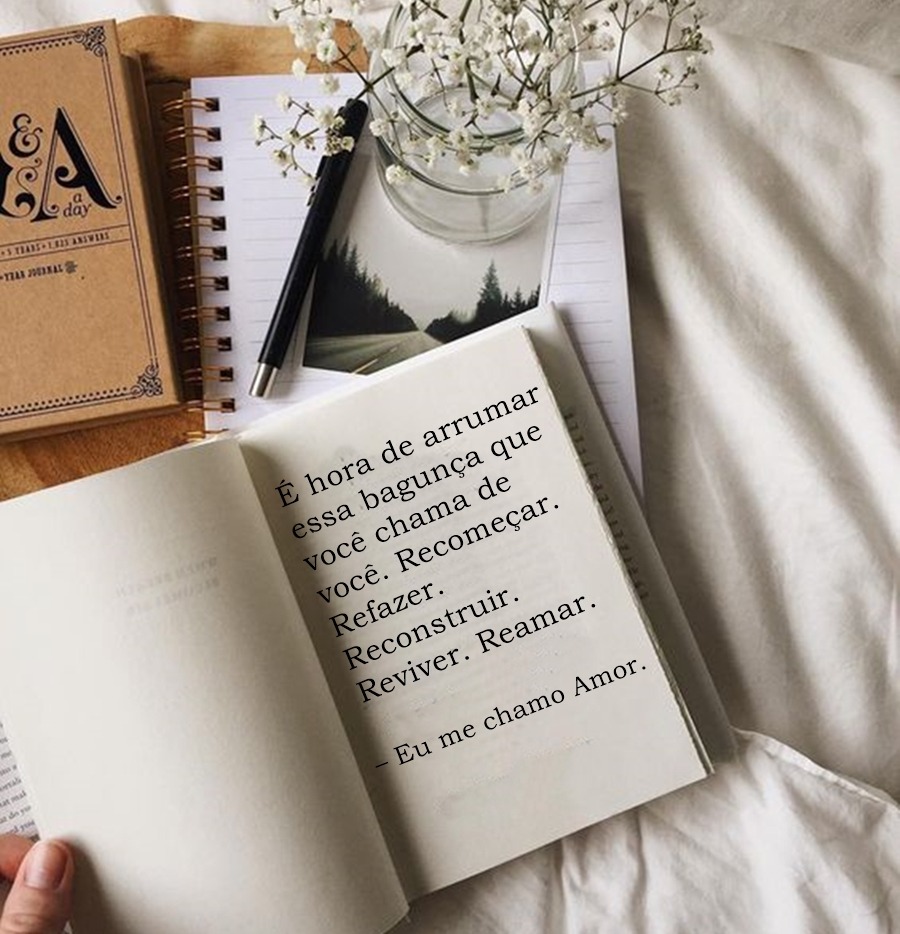 &A
a
day
5 YEARS • 1,825 ANSWERS
YEAR JOURNAL
É hora de arrumar
essa bagunça que
você chama de
você. Recomeçar.
Refazer.
Reconstruir.
Reviver. Reamar.
– Eu me chamo Amor.